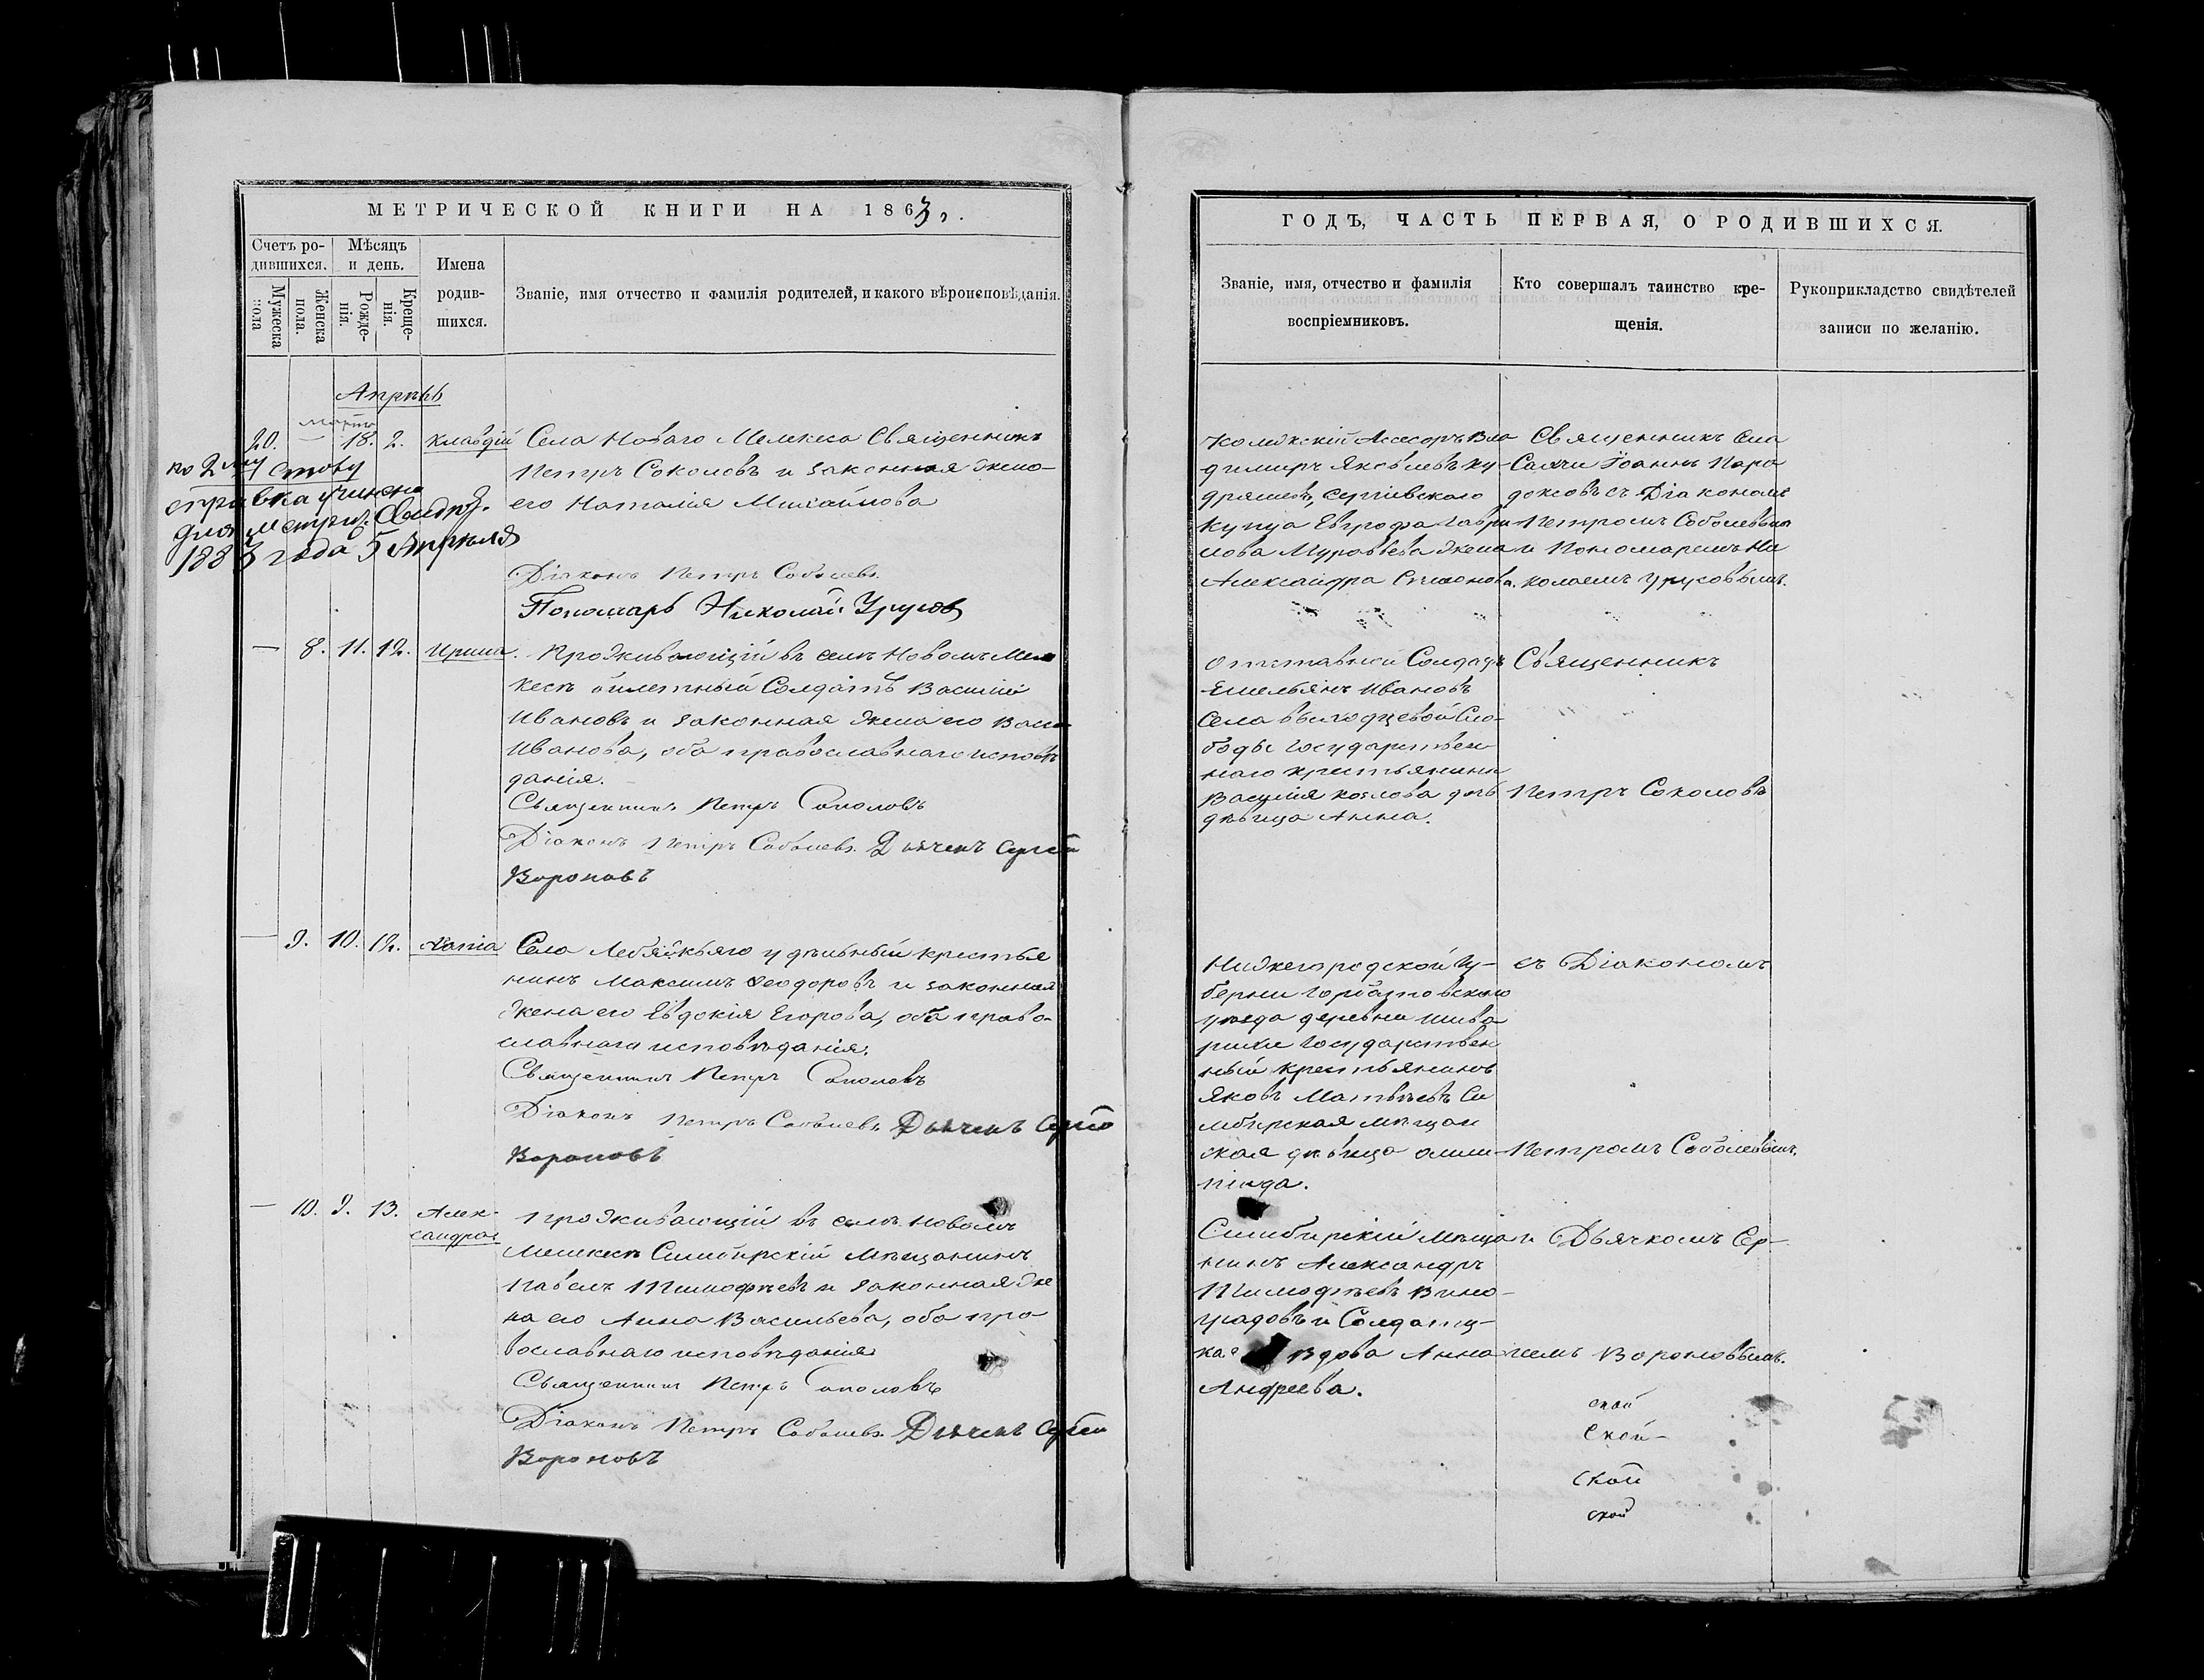 МЕТРИЧЕСКОЙ КНИГИ НА 1863 г.
Счетъ ро-
дившихся.
Мѣсяцъ
и день.
Имена
родив-
шихся.
Мужеска
пола
Женска
пола.
Рожде-
нія.
Креще-
нія.
Званіе, имя отчество и фамилія родителей, и какого вѣроисповѣданія.
Апрѣль
Марта
20. — 18. 2. Клавдій Села Новаго Мелекеса Священникъ
Петръ Соколовъ и законная жена
его Наталія Михайлова
по 2му столу
справка учинена
для метрич. свидѣт.
1883 года 5 Апрѣля
Діаконъ Петръ Соболевъ.
Пономарь Николай Урусовъ
— 8. 11. 12. Ирина. Проживающій въ селѣ Новомъ Меле
кесѣ билетный Солдатъ Василій
Ивановъ и законная жена его Васса
Иванова, оба православнаго исповѣ
данія.
Священникъ Петръ Соколовъ
Діаконъ Петръ Соболевъ. Дьячекъ Сергѣй
Вороновъ
— 9. 10. 12. Села Лебяжьяго удѣльный крестья
нинъ Максимъ Ѳеодоровъ и законная
жена его Евдокія Егорова, оба право-
славнаго исповѣданія.
Священникъ Петръ Соколовъ
Діаконъ Петръ Соболевъ. Дьячекъ Сергѣй
Вороновъ
— 10. 9. 13. Алек-
сандра Проживающій въ селѣ Новомъ
Мелекесѣ Симбирскій Мѣщанинъ
Павелъ Тимофѣевъ и законная же
на его Анна Васильева, оба пра
вославнаго исповѣданія
Священникъ Петръ Соколовъ
Діаконъ Петръ Соболевъ. Дьячекъ Сергѣй
Вороновъ
ГОДЪ, ЧАСТЬ ПЕРВАЯ, О РОДИВШИХСЯ.
Званіе, имя, отчество и фамилія
воспріемниковъ.
Кто совершалъ таинство кре-
щенія.
Рукоприкладство свидѣтелей
записи по желанію.
Коллежскій Асесоръ Вла
димиръ Яковлевъ Ку-
дряшевъ, Сергіевского
купца Евграфа Гаври
лова Муравьева жена
Александра Симонова.
Священникъ села
Іоаннъ Пара
доксовъ съ Діакономъ
Петромъ Соболевымъ
и Пономаремъ Ни
колаемъ Урусовымъ.
Отставной Солдатъ
Емельянъ Ивановъ
Села Сло-
боды Государствен
наго крестьянина
Василія Козлова дочь
дѣвица Анна.
Священникъ
Петръ Соколовъ
Нижегородской Гу-
берніи Горбатовскаго
уѣзда деревни
Государствен
ный крестьянинъ
Яковъ Матвѣевъ Си
мбирская мѣщан
ская дѣвица Олим-
піада.
съ Діакономъ
Петромъ Соболевымъ.
Симбирскій Мѣща
нинъ Александръ
Тимофѣевъ Вино-
градовъ и Солдатс-
кая вдова Анна
Андреева.
и Дьячкомъ Сер-
гѣемъ Вороновымъ.
ской
Ской-
Ской
ской